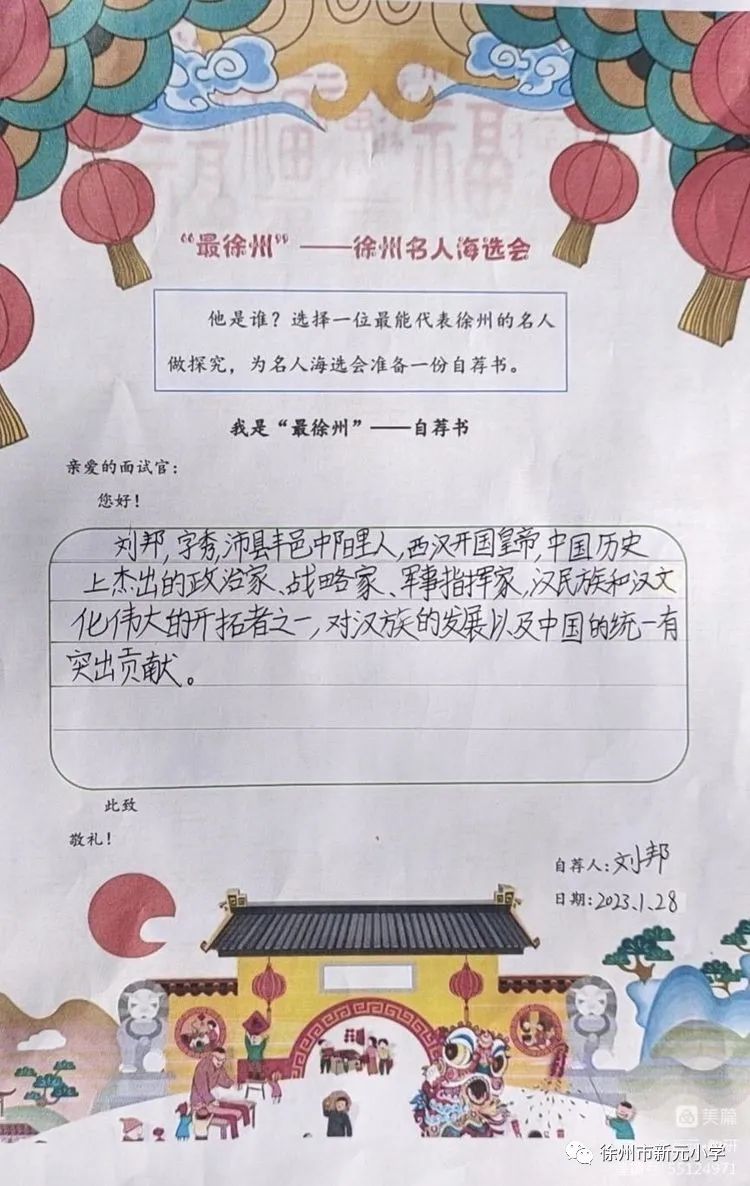 “最徐州”——徐州名人海选会
他是谁？选择一位最能代表徐州的名人
做探究，为名人海选会准备一份自荐书。
我是“最徐州”——自荐书
亲爱的面试官：
您好！
刘邦,字秀,沛县丰邑中阳里人,西汉开国皇帝,中国历史
上杰出的政治家、战略家、军事指挥家,汉民族和汉文
化伟大的开拓者之一,对汉族的发展以及中国的统一有
突出贡献。
此致
敬礼！
自荐人:刘邦
日期:2023.1.28
美篇
徐州市新元小学
55124971